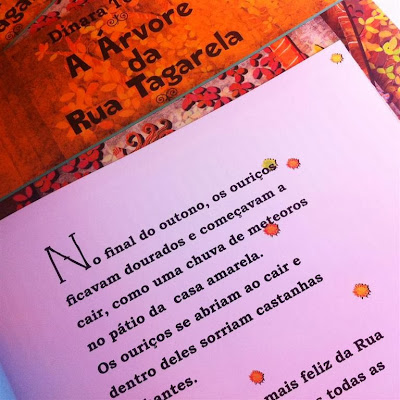 Dinara
A Árvore
da
Rua Tagarela
No final do outono, os ouriços
ficavam dourados e começavam a
cair, como uma chuva de meteoros
no pátio da casa amarela.
Os ouriços se abriam ao cair e
dentro deles sorriam castanhas
mais feliz da Rua
todas as